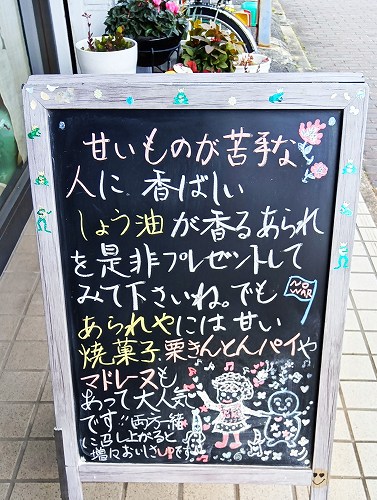 甘いものが苦手な
人に 香ばしい
しょう油が香るあられ
を是非プレゼントして
みて下さいね。でも
NO WAR
あられやには甘い
焼菓子、栗きんとんパイや
マドレーヌも
あって大人気
です!!両方一緒
に召し上がると
増々おいしさUPです